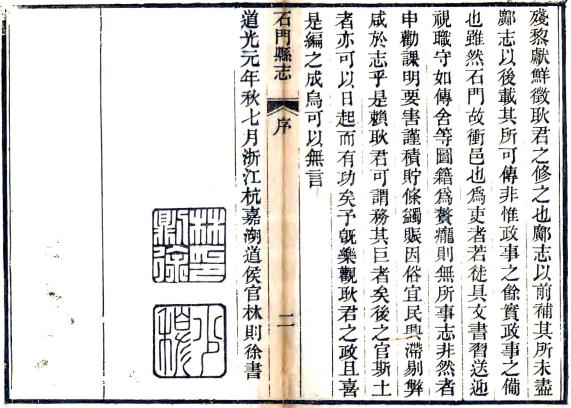 殘黎獻鮮徵耿君之修之也鄺志以前補其所未盡
鄺志以後載其所可傳非惟政事之餘實政事之備
也雖然石門故衝邑也爲吏者若徒具文書習送迎
視職守如傳舍等圖籍爲贅疣則無所事志非然者
申勸課明要害謹積貯條蠲賑因俗宜民興滯剔弊
咸於志乎是賴耿君可謂務其巨者矣後之官斯土
者亦可以日起而有功矣予旣樂觀耿君之政且喜
是編之成烏可以無言
石門縣志
序
二
道光元年秋七月浙江杭嘉湖道侯官林則徐書
林印
則徐
少穆